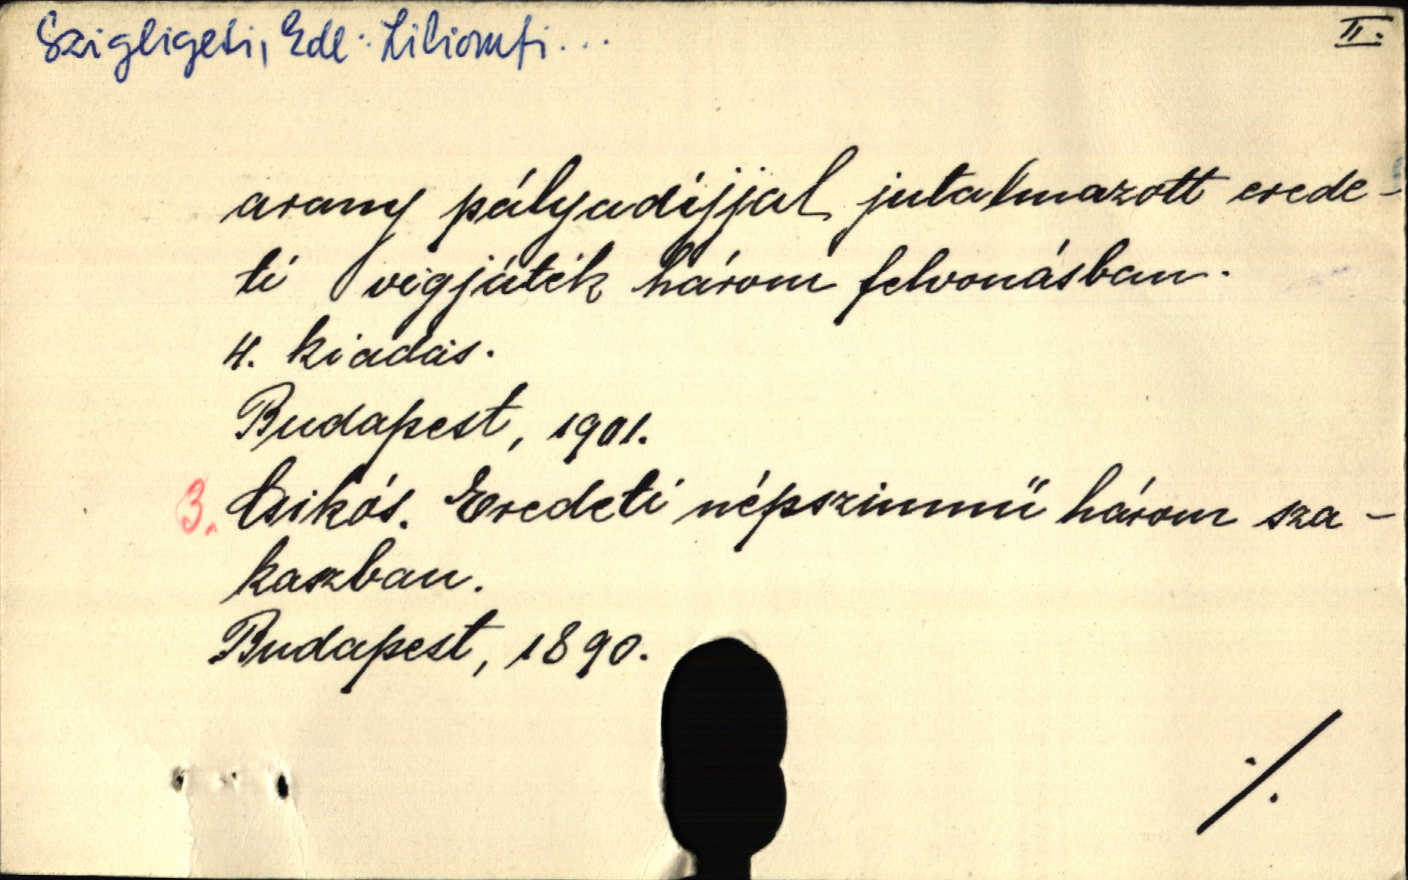 Szigligeti, Ede: Liliomfi...
II.
arany pályadíjjal jutalmazott erede-
ti vigjáték három felvonásban.
4. kiadás.
Budapest, 1901.
3. Csikós. Eredeti népszinmü három sza-
kaszban.
Budapest, 1890.
./.